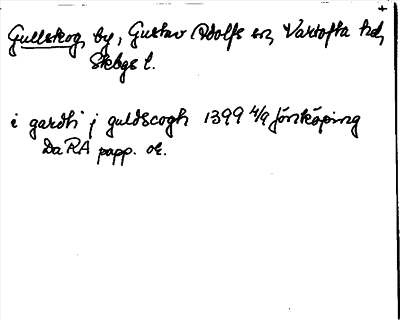 Gullskog, by, Gustav Adolfs sn, Vartofta hd,
Skbgs l.
i gardh j guldscogh 1399 4/9 Jönköping
DaRA papp. or.